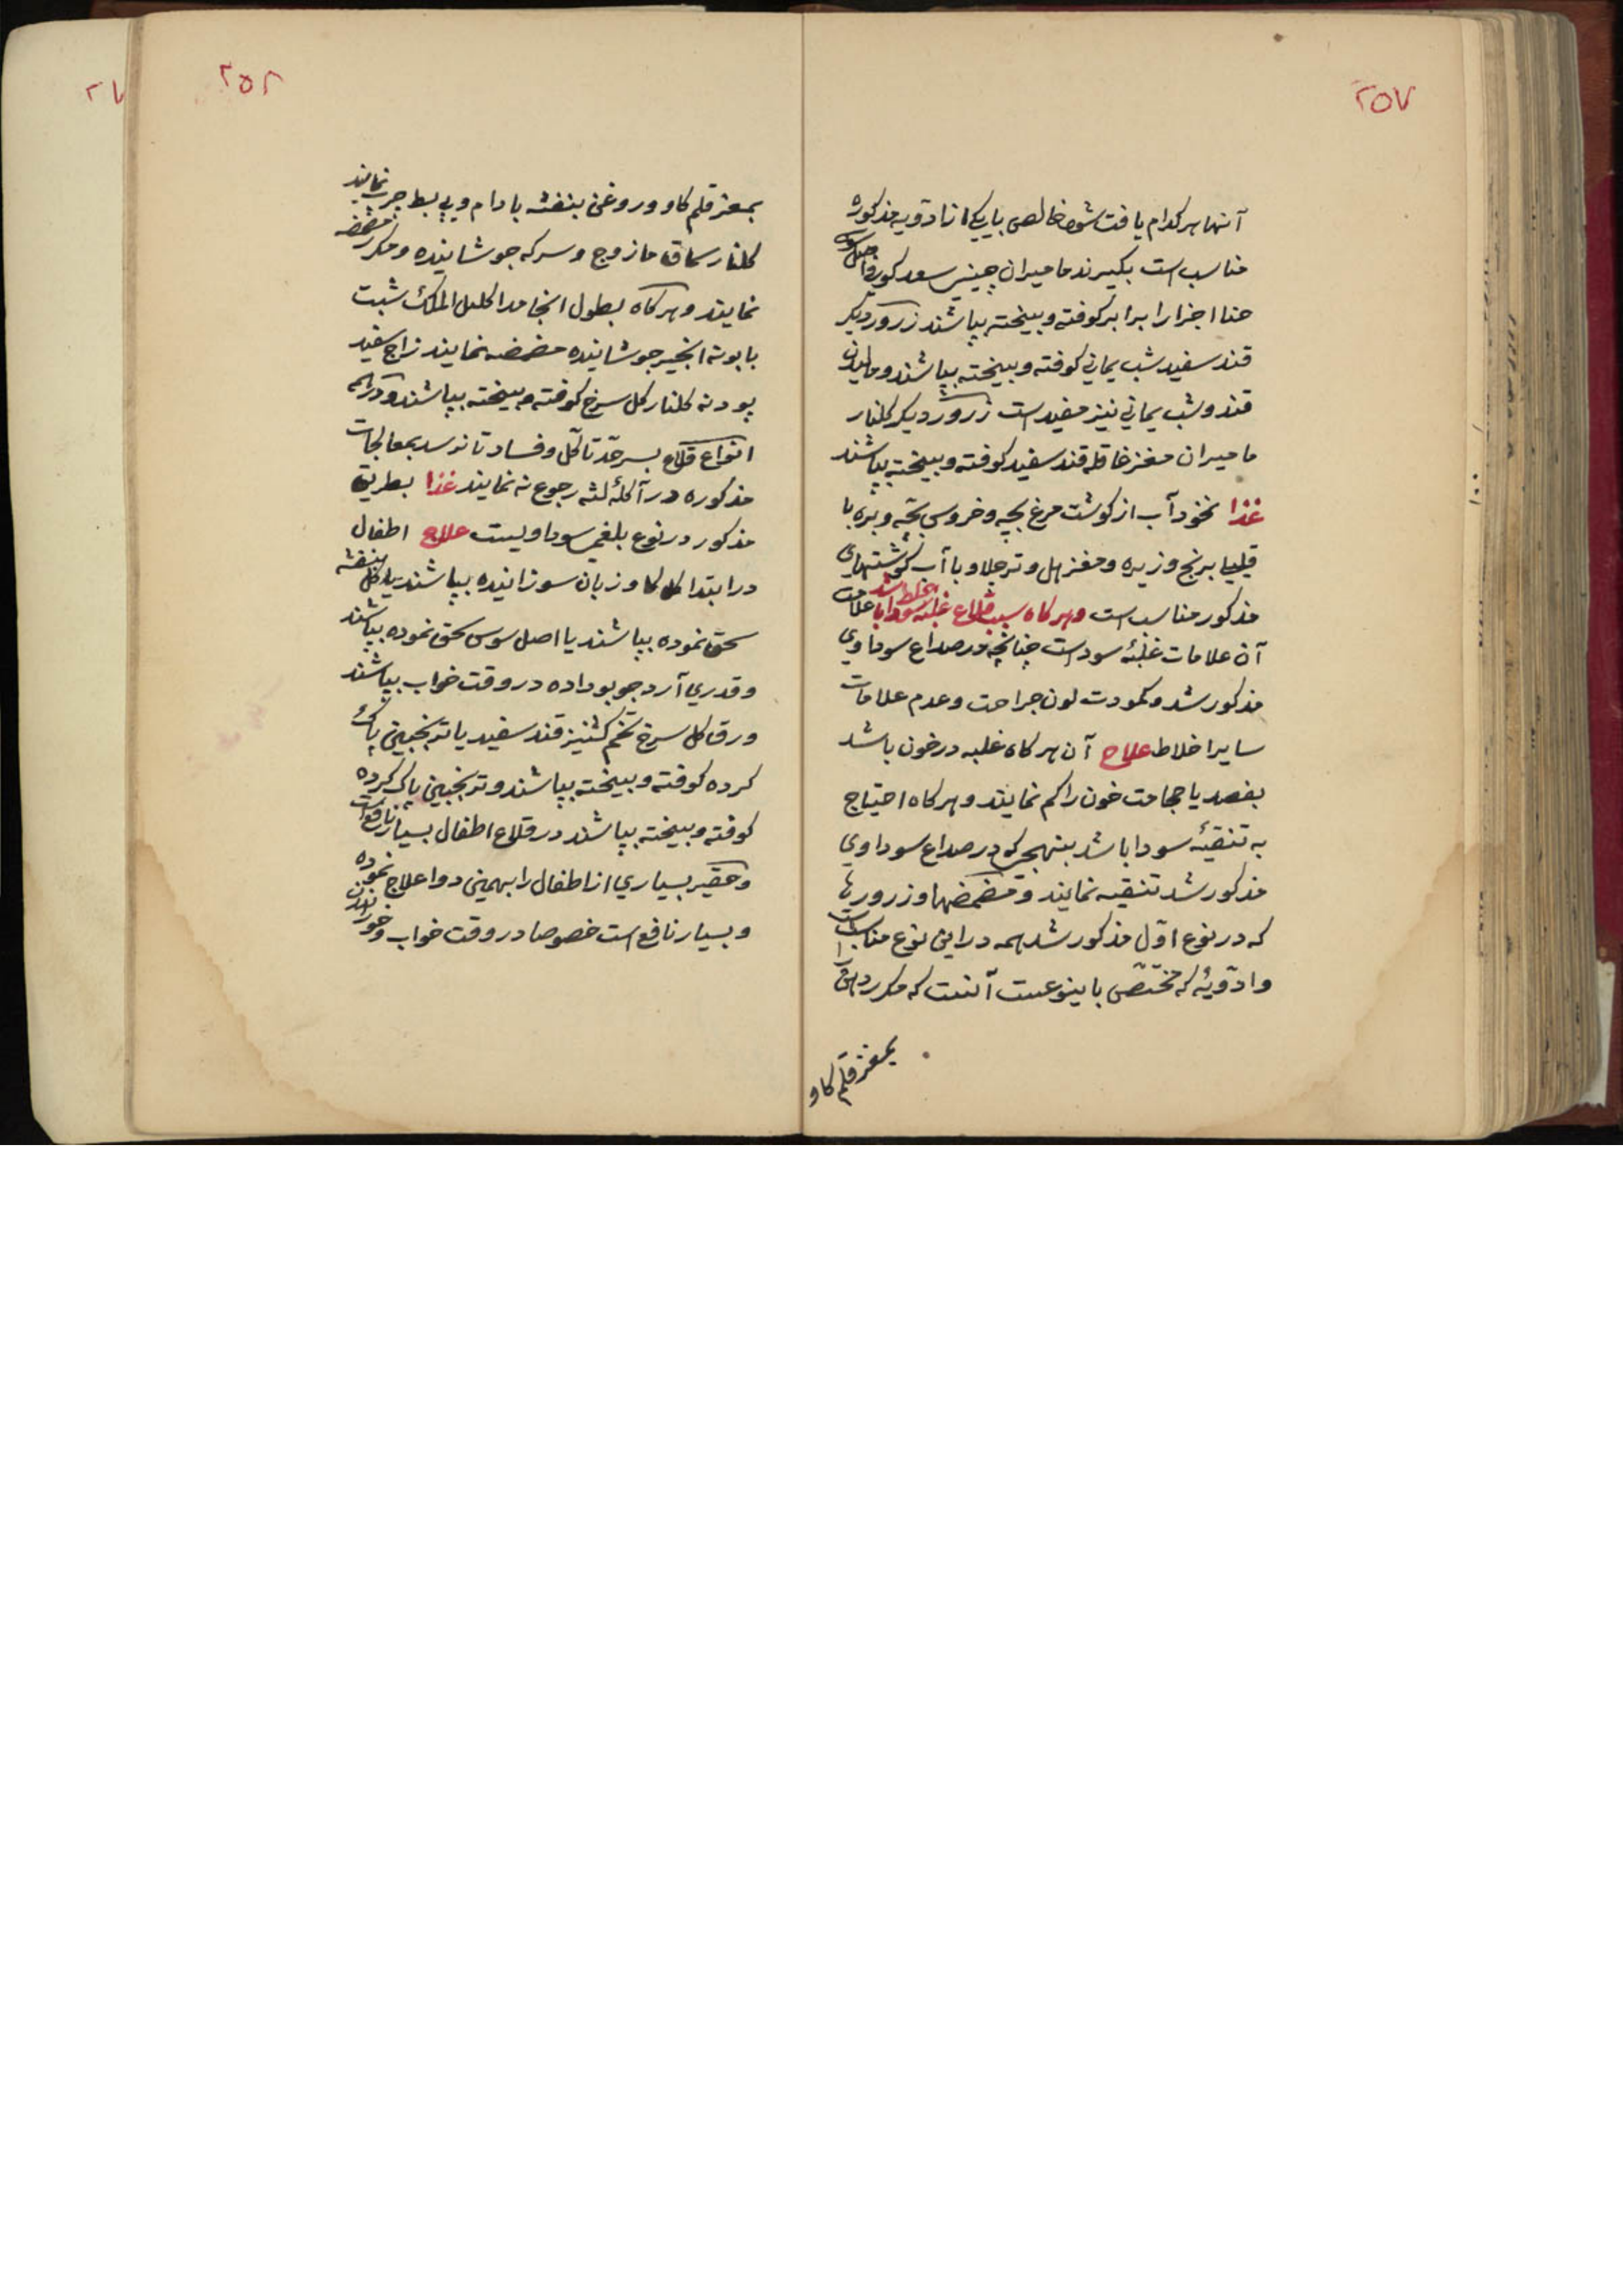 ٢٥٧
آنها هر کدام یافت شود خالص یا بیکی از ادویه مذکوره
مناسب است بکیرند مامیران چینی سعد کوفی
حنا اجزا را برابر کوفته و بیخته بپاشند زرور دیکر
قند سفید شب یمانی کوفته و بیخته بپاشند و مالیدن
قند و شب یمانی نیز مفید است زرور دیکر کلنار
مامیران مغز خاقله قند سفید کوفته و بیخته بپاشند
غذا نخود آب از کوشت مرغ بچه و خروس بچه و بره با
قلیلی برنج و زیره و مغز هل و ترچلاو با آب کوشتهای
مذکور مناسب است و هر کاه سبب قلاع غلبه خلط سودا باشد علامت
آن علامات غلبهٔ سوداست چنانچه در صداع سوداوی
مذکور شد و کمودت لون جراحت و عدم علامات
سایر اخلاط علاج آن هر کاه غلبه در خون باشد
بفصد یا حجامت خون را کم نمایند و هر کاه احتیاج
به تنقیهٔ سودا باشد بنهجی که در صداع سوداوی
مذکور شد تنقیه نمایند و مضمضها و زرورها
که در نوع اوّل مذکور شد همه در این نوع مناسب است
و ادویهٔ که مختصّ باینوعست آنست که مکرر دهن
بمغز قلم کاو
٢٥٨
بمغز قلم کاو و روغن بنفشه بادام و پیه بط چرب نمایند
کلنار سماق مازوج و سرکه جوشانیده و مکرر مضمضه
نمایند و هر کاه بطول انجامد اکلیل الملک شبت
بابونه انجیر جوشانیده مضمضه نمایند زاج سفید
پودنه کلنار کل سرخ کوفته و بیخته بپاشند و در همه
انواع قلاع بسرحّد تاکّل و فساد تا نرسد بمعالجات
مذکوره در آکلهٔ لثه رجوع نه نمایند غذا بطریق
مذکور در نوع بلغمی سوداویست علاج اطفال
در ابتدا کل کاو زبان سوزانیده بپاشند یا کل بنفشه
سحق نموده بپاشند یا اصل سوس سحق نموده بپاشند
و قدری آرد جو بو داده در وقت خواب بپاشند
ورق کل سرخ تخم کشنیز قند سفید یا ترنجبین پاک
کرده کوفته و بیخته بپاشند و ترنجبین پاک کرده
کوفته و بیخته بپاشند در قلاع اطفال بسیار نافع است
و حقیر بسیاری از اطفال را بهمین دوا علاج نموده
و بسیار نافع است خصوصا در وقت خواب و خورانیدن